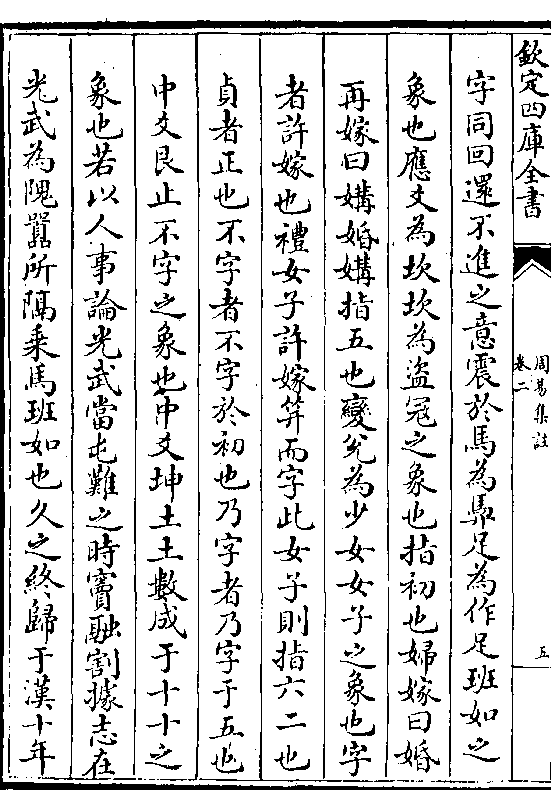 欽定四庫全書
周易集註
卷二
五
字同回還不進之意震於馬為馵足為作足班如之
象也應爻為坎坎為盜寇之象也指初也婦嫁曰婚
再嫁曰媾婚媾指五也變兌為少女女子之象也字
者許嫁也禮女子許嫁笄而字此女子則指六二也
貞者正也不字者不字於初也乃字者乃字于五也
中爻艮止不字之象也中爻坤土土數成于十十之
象也若以人事論光武當屯難之時竇融割據志在
光武為隗囂所隔乗馬班如也久之終歸于漢十年